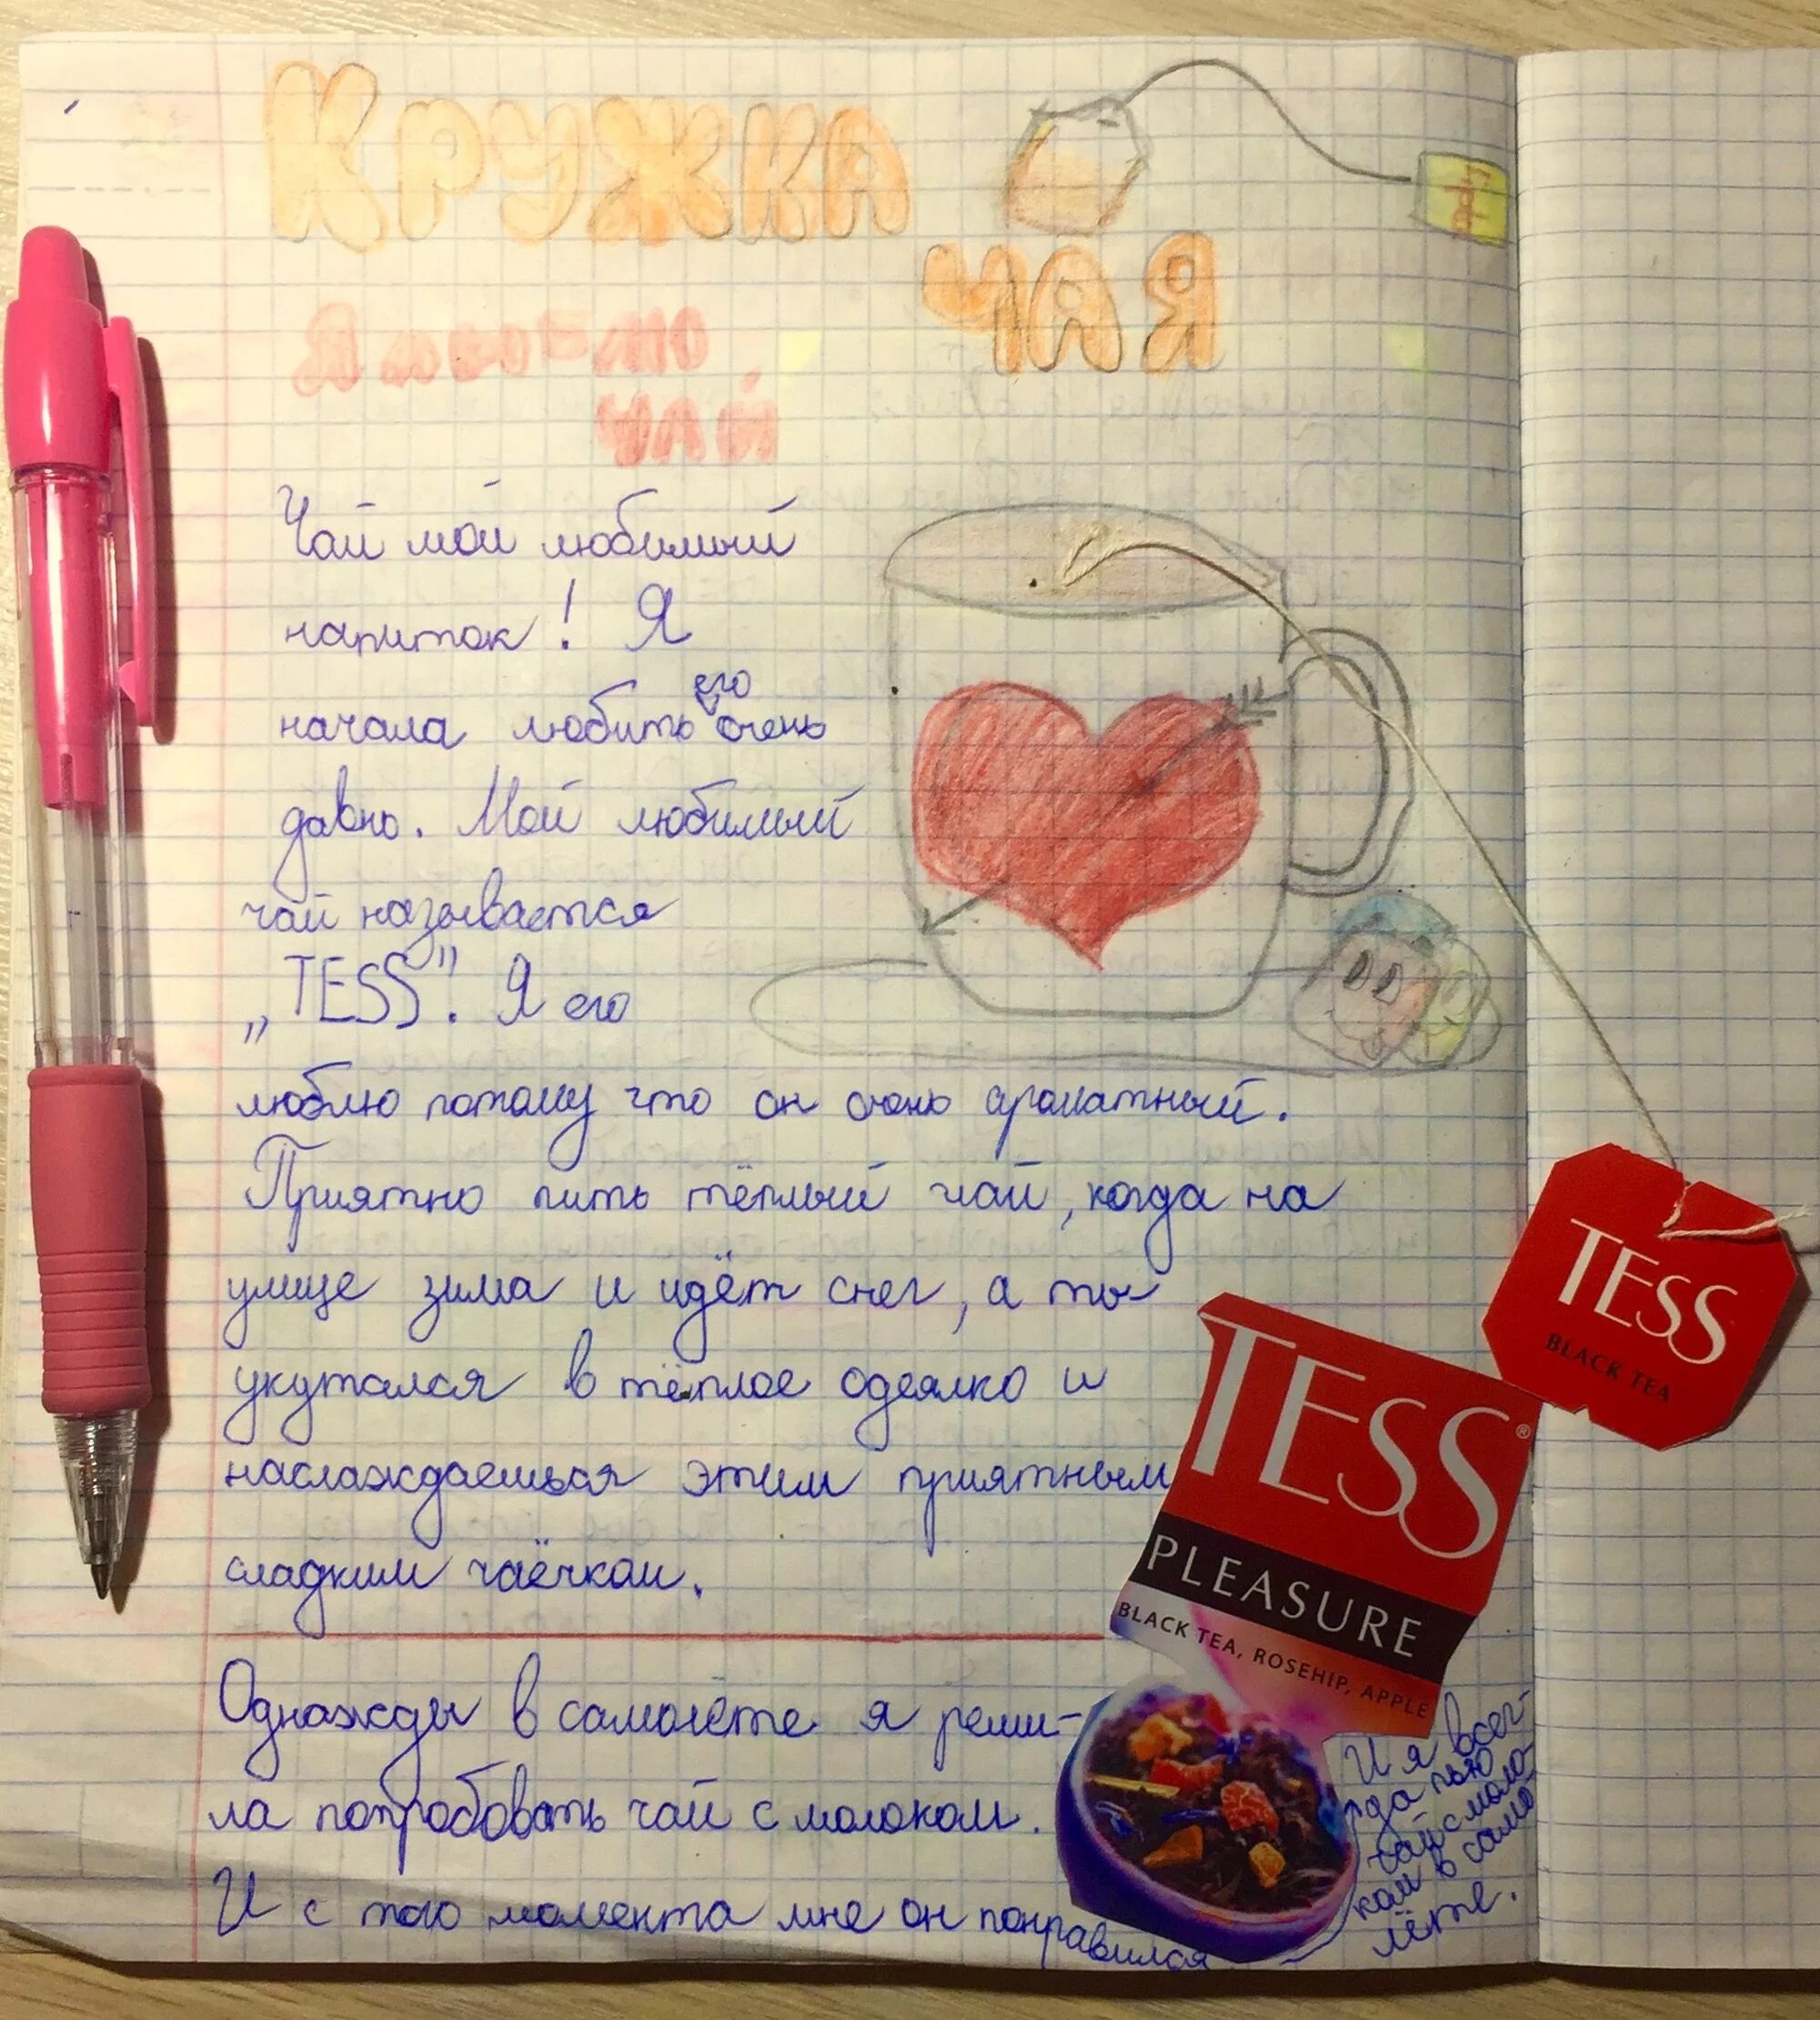 КРУЖКА
ЧАЯ
чай
Я люблю
чай
Чай мой любимый
напиток! Я
начала любить его очень
давно. Мой любимый
чай называется
„TESS”. Я его
люблю потому что он очень ароматный.
Приятно пить тёплый чай, когда на
улице зима и идёт снег, а ты
укутался в тёплое одеялко и
наслаждаешься этим приятным
сладким чаёчком.
Однажды в самолёте я реши-
ла попробовать чай с молоком.
И с того момента мне он понравился
И я всег-
да пью
чай с моло-
ком в само
лёте.
TESS
BLACK TEA
TESS®
PLEASURE
BLACK TEA, ROSEHIP, APPLE